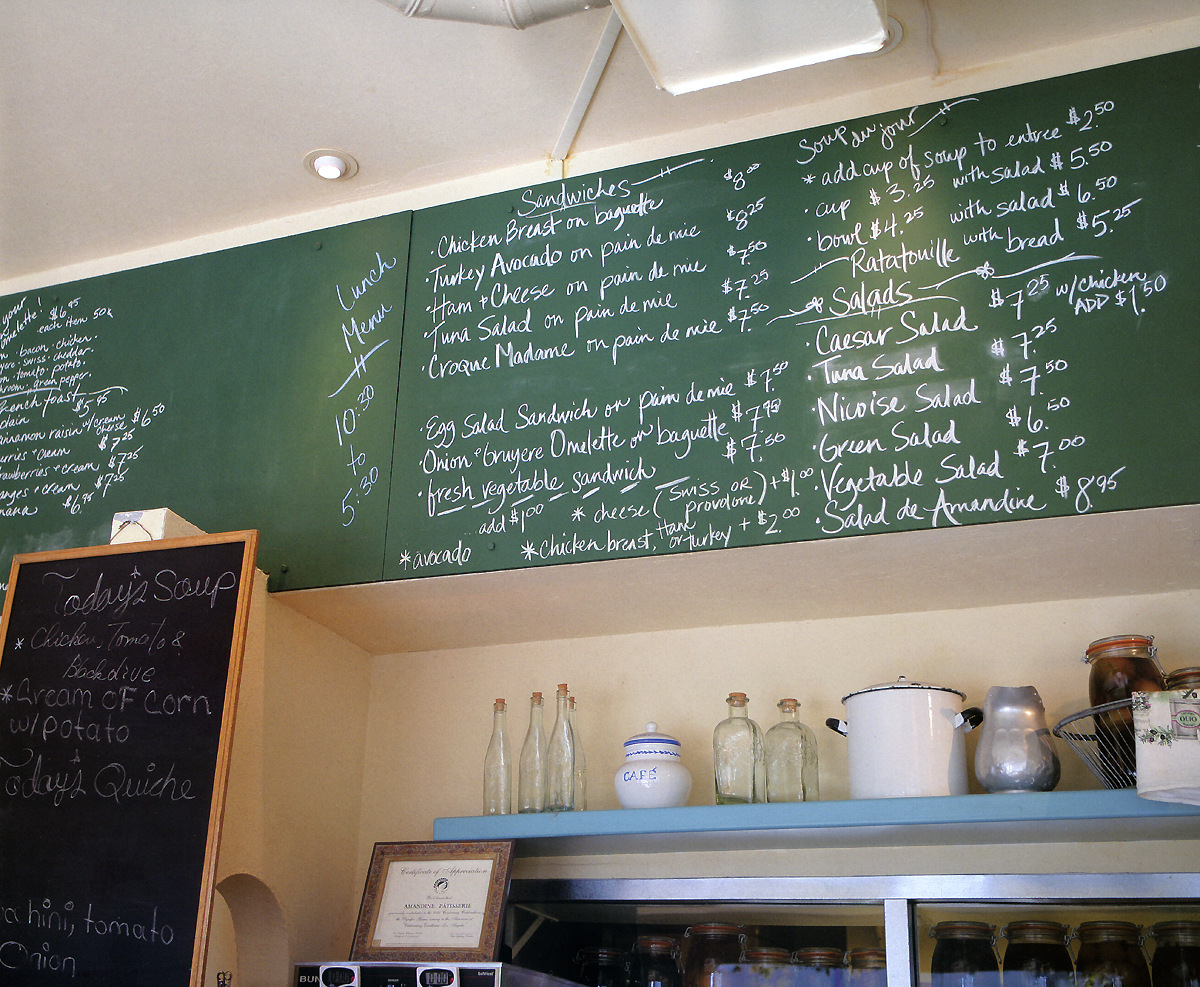 your
$6.95
each item 50¢
bacon · chicken ·
swiss · cheddar ·
tomato · potato ·
green pepper ·
French toast
plain $5.95
cinnamon raisin w/cream cheese $6.50
cream $7.25
strawberries + cream $7.25
oranges + cream $7.25
banana $6.95
Lunch
Menu
10:30
to
5:30
Sandwiches
· Chicken Breast on baguette $8.00
· Turkey Avocado on pain de mie $8.25
· Ham + Cheese on pain de mie $7.50
· Tuna Salad on pain de mie $7.25
· Croque Madame on pain de mie $7.50
· Egg Salad Sandwich on pain de mie $7.50
· Onion + Gruyere Omelette on baguette $7.95
· fresh vegetable sandwich $7.50
add $1.00 * cheese (Swiss or provolone) + $1.00
* avocado * Chicken breast, Ham or turkey + $2.00
Soup du jour
* add cup of soup to entree $2.50
· cup $3.25 with salad $5.50
· bowl $4.25 with salad $6.50
Ratatouille with bread $5.25
Salads
· Caesar Salad $7.25 w/chicken ADD $1.50
· Tuna Salad $7.25
· Nicoise Salad $7.50
· Green Salad $6.50
· Vegetable Salad $7.00
· Salad de Amandine $8.95
Today's Soup
* Chicken, Tomato &
* Cream OF Corn
w/potato
Today's Quiche
tomato
Onion
CAFÉ
OLIO
Certificate of Appreciation
AMANDINE PATISSERIE
BUNN